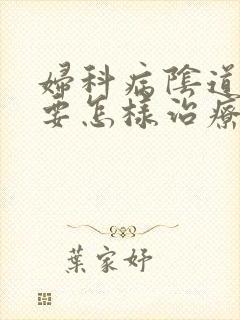 婦科病陰道
要怎樣治療
葉家妤